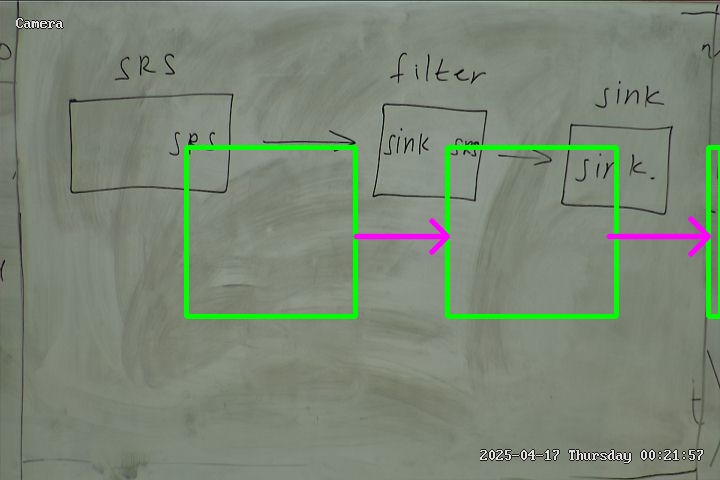 Camera
SRS
filter
sink
SRS
sink src
sink.
2025-04-17 Thursday 00:21:57